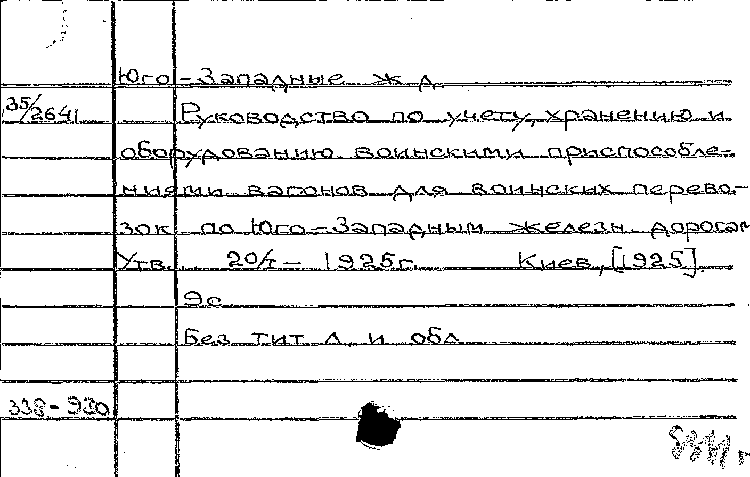 Юго-Западные ж д
35/2641 Руководство по учету, хранению и
оборудованию воинскими приспособле-
ниями вагонов для воинских перево-
зок по Юго-Западным железн. дорогам
Утв. 20/I - 1925г. Киев, [1925].
9с
Без тит л. и обл
338-930